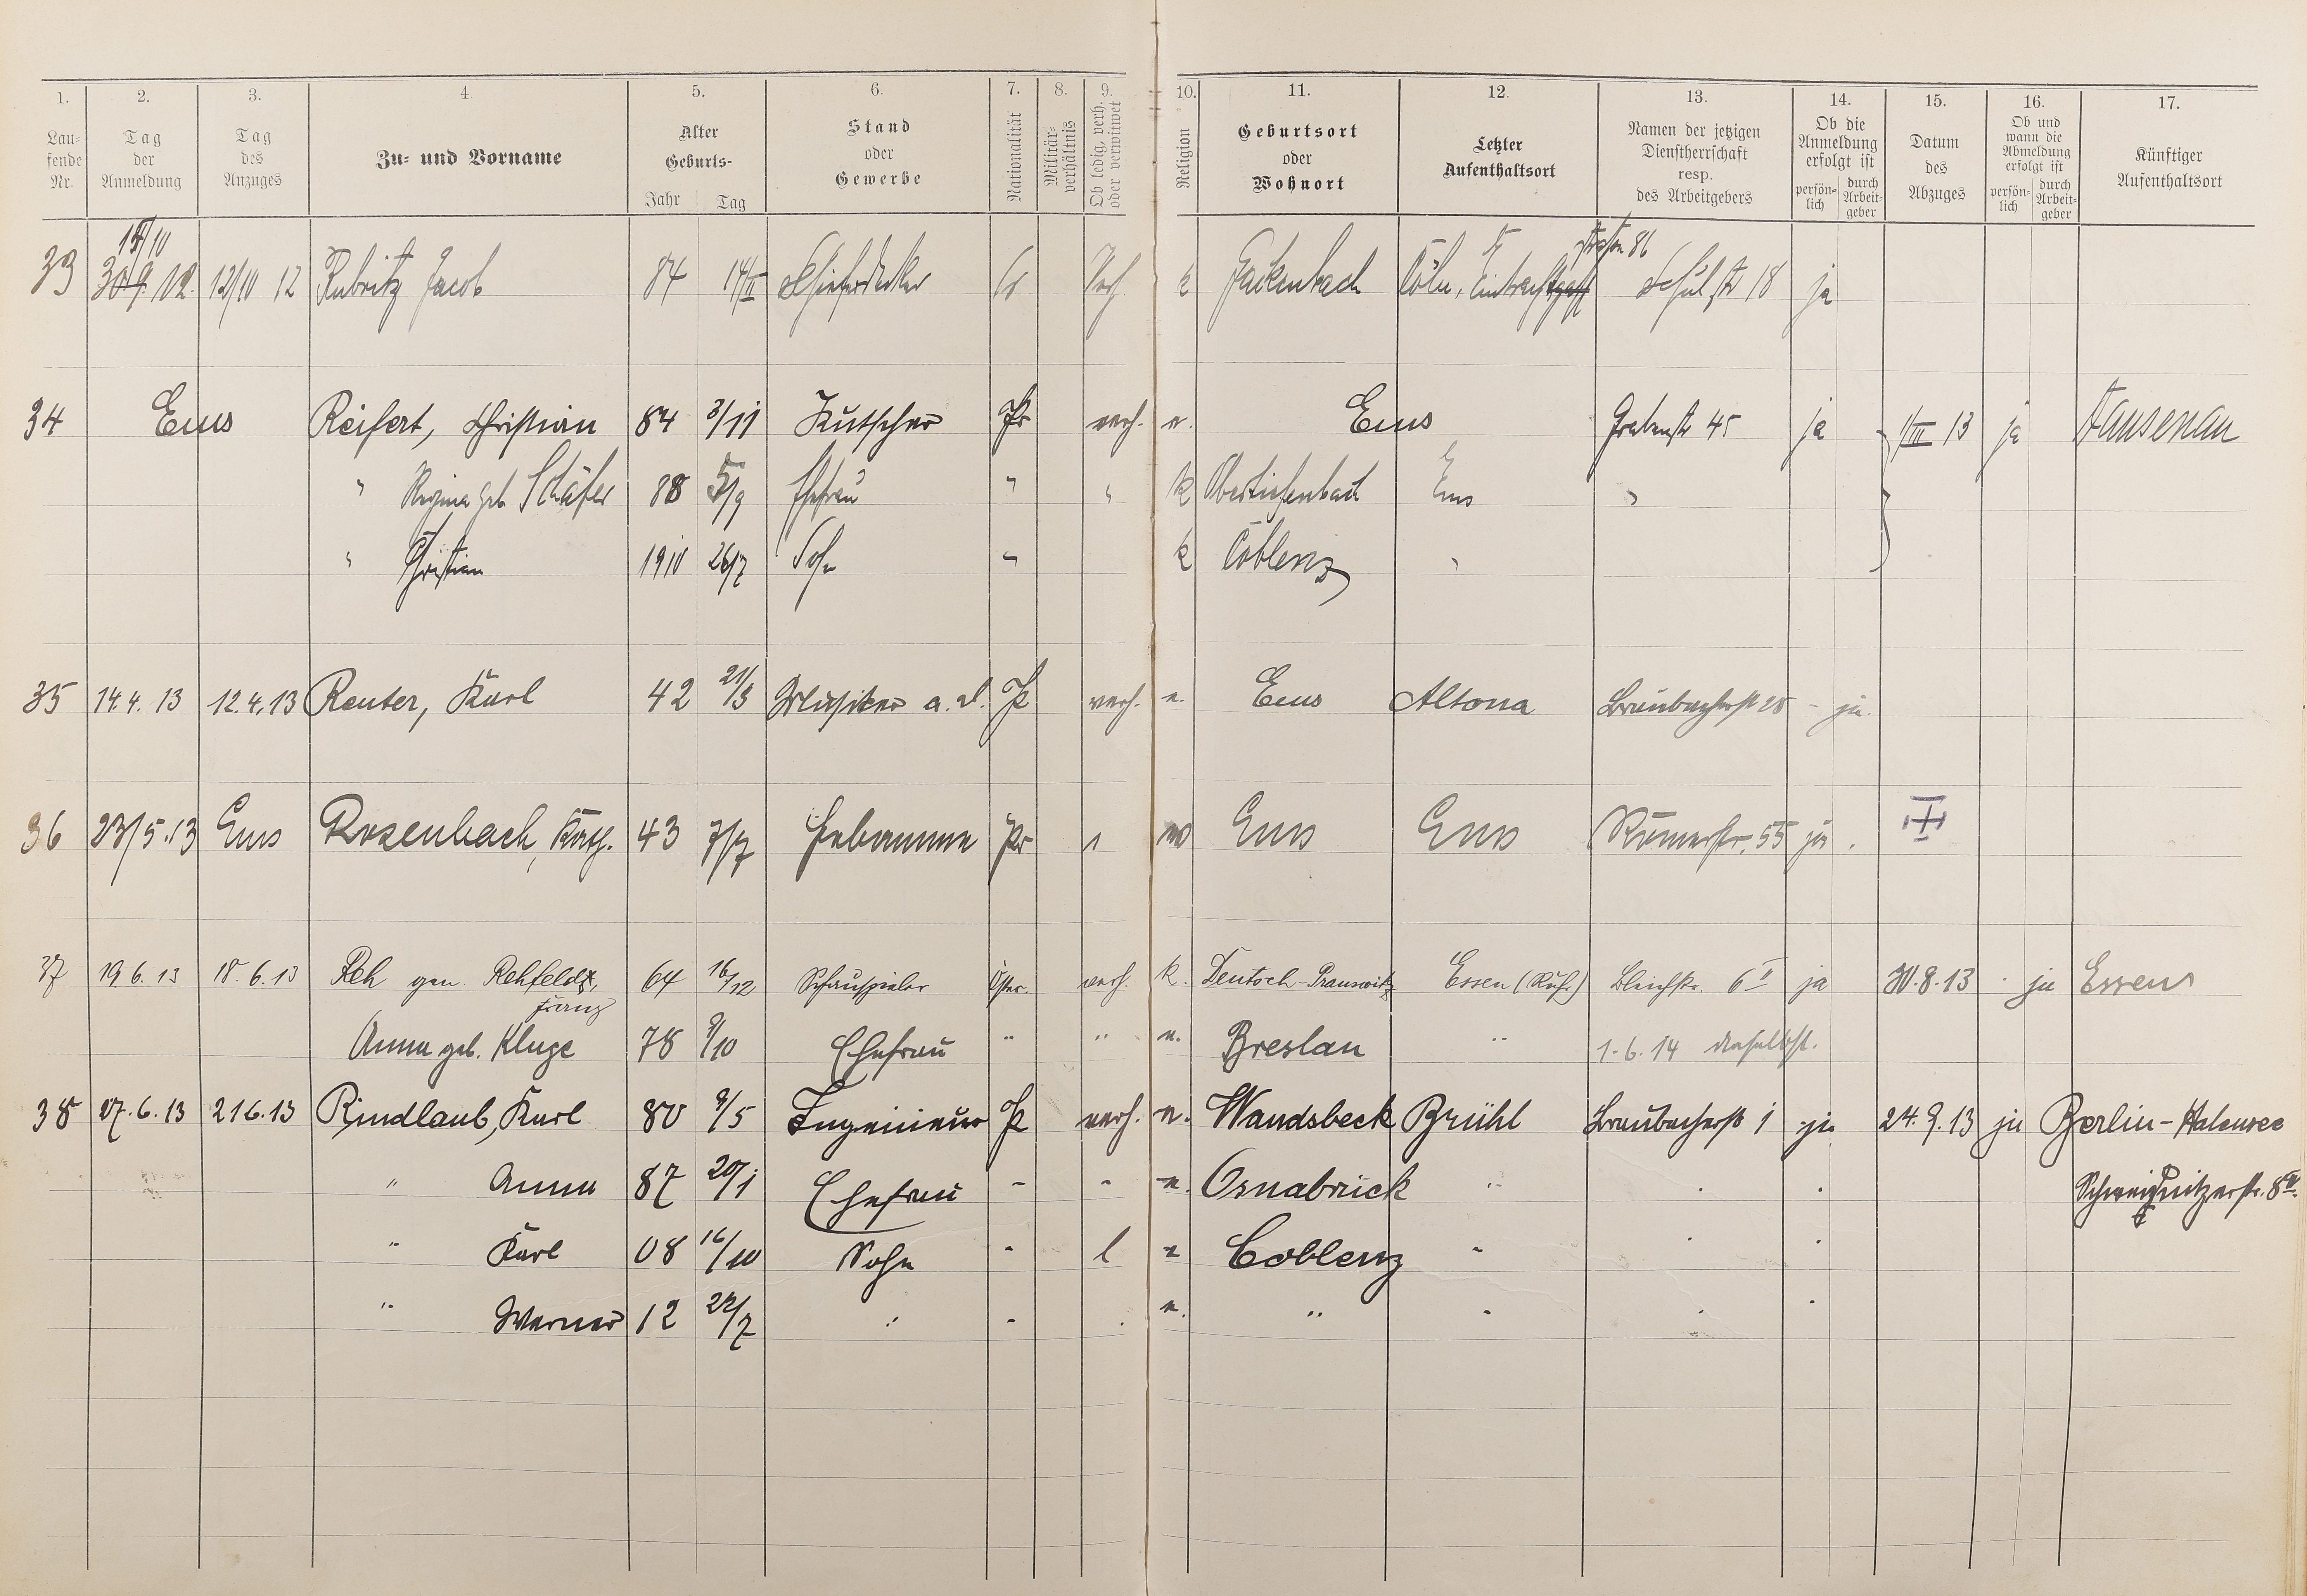 1. 2. 3. 4. 5. 6. 7. 8. 9. 10. 11. 12. 13. 14. 15. 16. 17.
Lau-
fende
Nr.
Tag
der
Anmeldung
Tag
des
Anzuges
Zu- und Vorname
Alter
Geburts-
Jahr Tag
Stand
oder
Gewerbe
Nationalität
Militär-
verhältnis
Ob ledig, verh.
oder verwitwet
Religion
Geburtsort
oder
Wohnort
Letzter
Aufenthaltsort
Namen der jetzigen
Dienstherrschaft
resp.
des Arbeitgebers
Ob die
Anmeldung
erfolgt ist
persön-
lich
durch
Arbeit-
geber
Datum
des
Abzuges
Ob und
wann die
Abmeldung
erfolgt ist
persön-
lich
durch
Arbeit-
geber
Künftiger
Aufenthaltsort
15/10
33 30.9. 12. 12/10 12 Rubritz Jacob 84 14/III Schieferdecker Pr Verh. k Gackenbach Cöln, Eintracht straße 86 Schulstr 18 ja
34 Ems Reifert, Christian 84 3/11 Kutscher Pr verh. e. Ems Grabenstr 45 ja 1/III 13 ja Dausenau
" Regina geb. Schäfer 88 5/9 Ehefrau " " k Obertiefenbach Ems "
" Christian 1910 26/7 Sohn " k Coblenz "
35 14.4.13 12.4.13 Reuter, Karl 42 21/3 Musiker a. D. P verh. e. Ems Altona Braubacherstr 28 - ja.
36 23/5.13 Ems Rosenbach, Kath. 43 7/7 Hebamme Pr Ems Ems Römerstr. 55 ja.
37 19.6.13 18.6.13 Reh gen. Rehfeld, 64 16/12 Schauspieler Öster. verh. k. Deutsch-Prausnitz Essen (Ruhr) Bleichstr. 6 II ja 30.8.13 ja Essen
Franz
Anna geb. Kluge 78 9/10 Ehefrau " " e. Breslau " 1.6.14 daselbst.
38 27.6.13 21.6.13 Rindlaub, Karl 80 9/5 Ingenieur P verh. e. Wandsbeck Brühl Braubacherstr 1 ja 24.9.13 ja Berlin-Halensee
" Anna 87 20/1 Ehefrau - - e. Osnabrück " . . Schweidnitzerstr. 8 II.
" Karl 08 16/10 Sohn - l e Coblenz " . .
" Werner 12 22/7 " - . e. " " . .